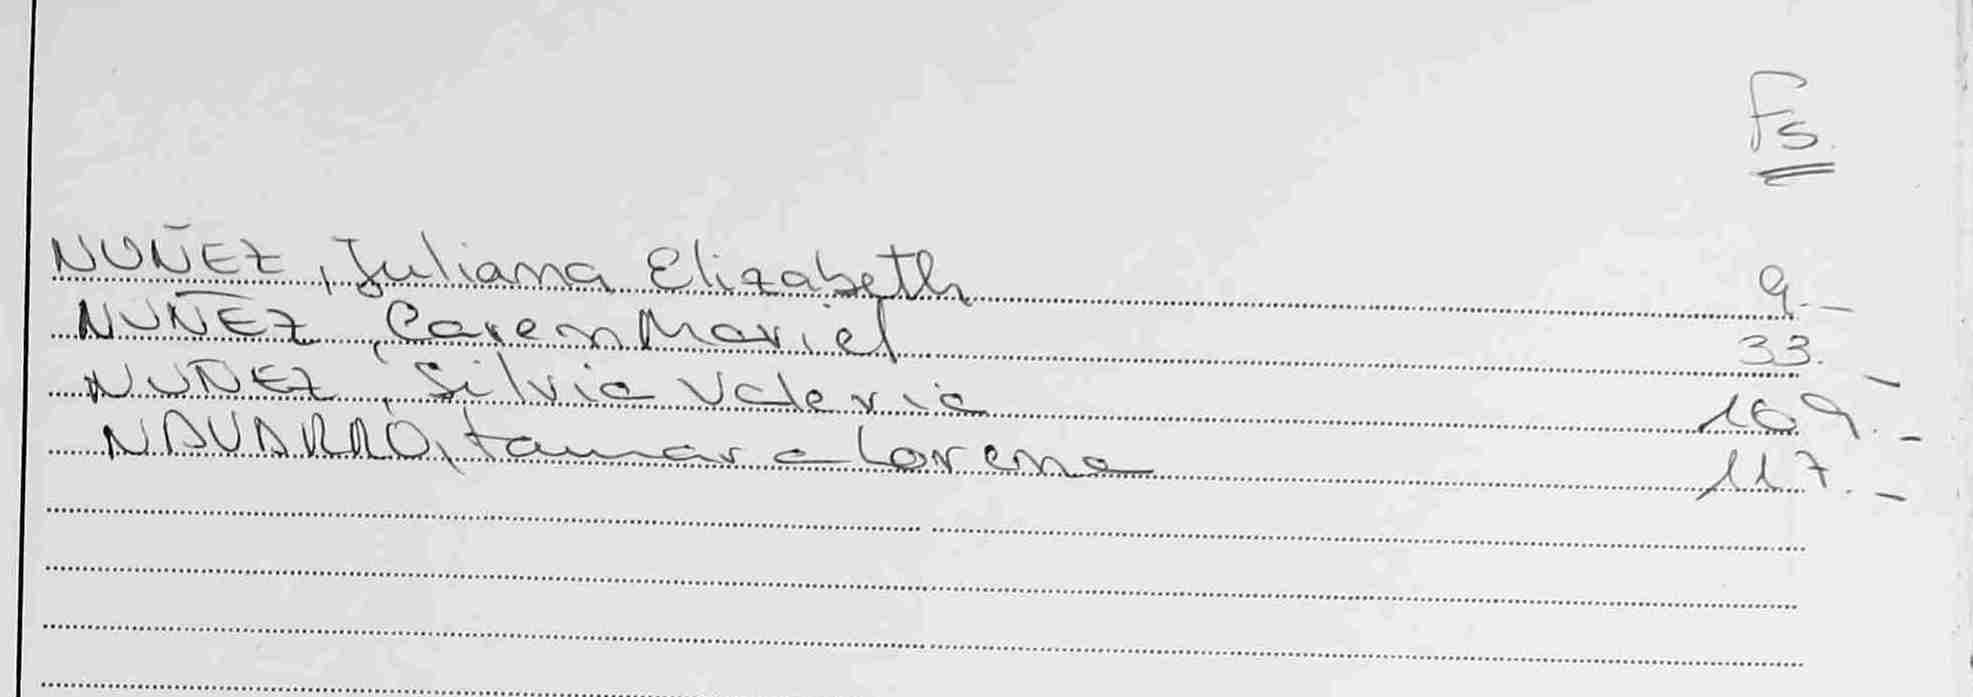 Fs.
NUÑEZ, Juliana Elizabeth 9.-
NUÑEZ, Caren Mariel 33.-
NUÑEZ, Silvia Valeria 109.-
NAVARRO, tamara Lorena 117.-